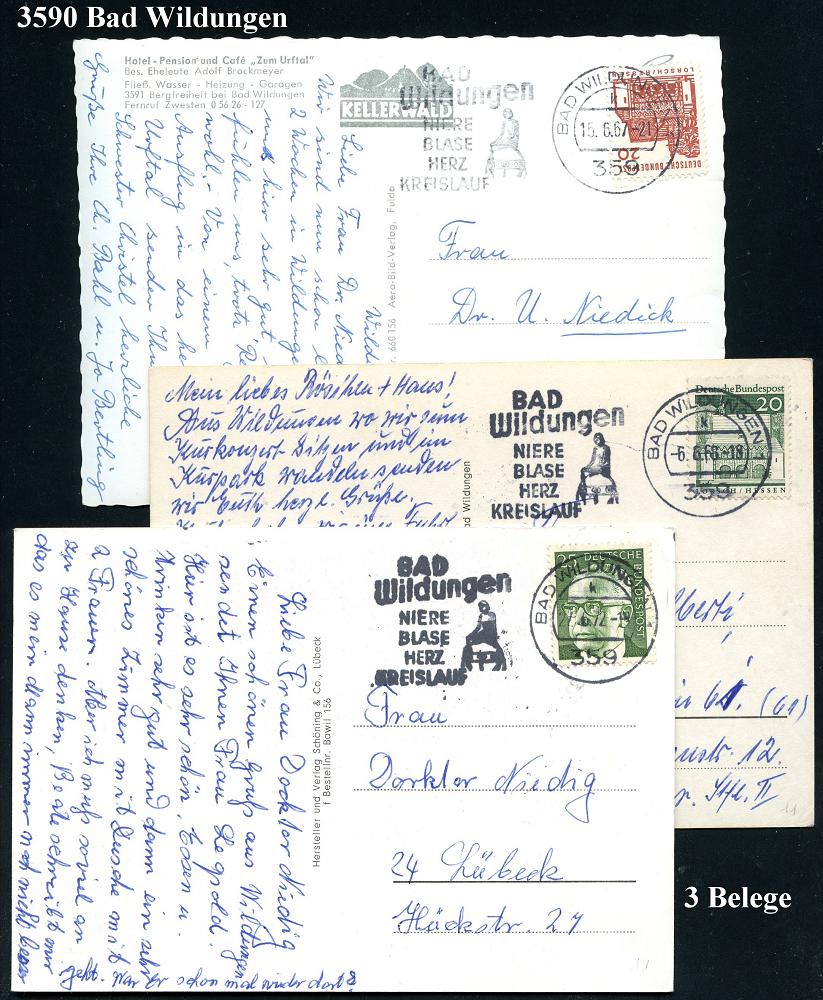 3590 Bad Wildungen
Hotel-Pension und Café „Zum Urftal“
Bes. Eheleute Adolf Brockmeyer
Fließ. Wasser - Heizung - Garagen
3591 Bergfreiheit bei Bad Wildungen
Fernruf Zwesten 0 56 26 - 127
KELLERWALD
BAD
Wildungen
NIERE
BLASE
HERZ
KREISLAUF
BAD WILDUNGEN
15.6.67-21
359
DEUTSCHE BUNDESPOST
20
Wild
Liebe Frau Dr. Nied
Wir sind nun schon
2 Wochen in Wildunge
und hier sehr gut
fühlen uns, trotz Re
wohl. - Von einem
Ausflug in das he
Urftal senden Ihn
Schwester Christel herzliche
Grüße Ihre Ch. Dahl u. Jo Bertling
660156 Aero-Bild-Verlag, Fulda
Frau
Dr. U. Niedick
Mein liebes Röschen + Hans!
Aus Wildungen wo wir zum
Kurkonzert sitzen und im
Kurpark wandeln senden
wir Euch herzl. Grüße.
ad Wildungen
BAD
Wildungen
NIERE
BLASE
HERZ
KREISLAUF
BAD WILDUNGEN
359
Deutsche Bundespost
20
LORSCH/HESSEN
(61)
str. 12.
Liebe Frau Doctor Niedig
Einen schönen Gruß aus Wildungen
sendet Ihnen Frau Legold.
Hier ist es sehr schön. Essen u.
Trinken sehr gut und dann ein sehr
schönes Zimmer mit Dusche mit
2 Frauen. Aber ich muß soviel an
zu Hause denken, Beate schreibt mir
das es mein Mann immer noch nicht besser
geht. War er schon mal wieder dort?
Hersteller und Verlag Schöning & Co., Lübeck
f Bestellnr. Bawil 156
BAD
Wildungen
NIERE
BLASE
HERZ
KREISLAUF
BAD WILDUNGEN 1
359
25 DEUTSCHE BUNDESPOST
Frau
Dorktor Niedig
24 Lübeck
Hückstr. 27
3 Belege